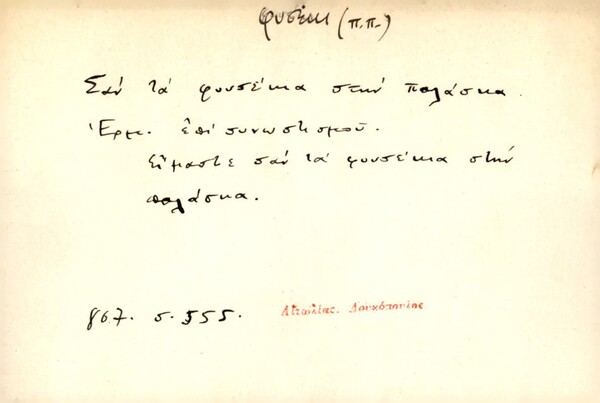 φυσέκι (π.π.)
Σαν τά φυσέκια στην παλάσκα.
Ἑρμ. ἐπί συνωστισμοῦ.
Εἴμαστε σαν τά φυσέκια στήν
παλάσκα.
867. σ. 555.
Αἰτωλίας. Λουκόπουλος